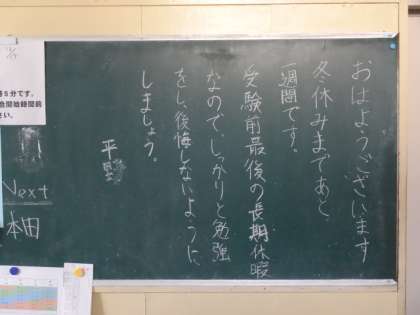 おはようございます
冬休みまであと
1週間です。
受験前最後の長期休暇
なので、しっかりと勉強
をし、後悔しないように、
しましょう。
平
Next
本田
5分です。
会開始時間前
さい。